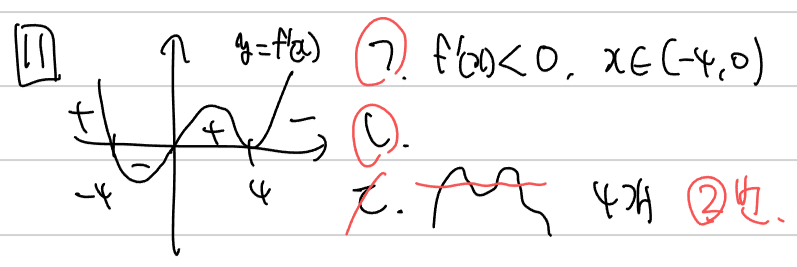 11 y=f'(x) ㄱ. f'(x)<0, x∈(-4,0)
+ + - ㄴ.
-
-4 4 ㄷ. 4개 ②번.